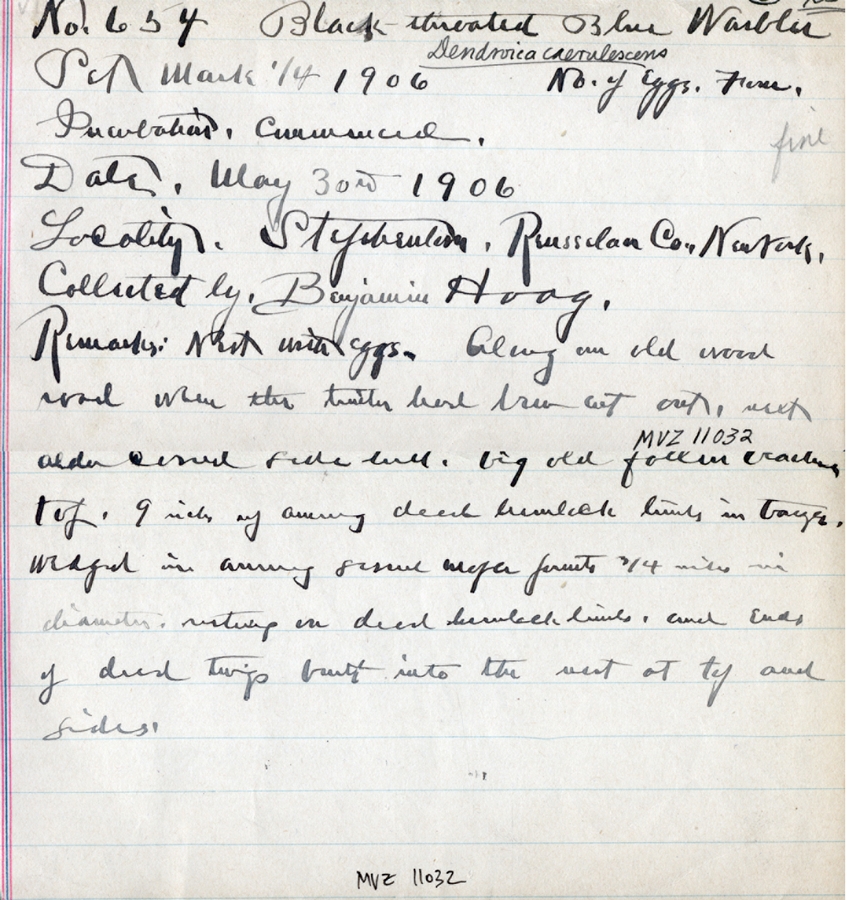 No. 654 Black-throated Blue Warbler
Dendroica caerulescens
Set Mark 1/4 1906 No. of Eggs. Four.
Incubation. Commenced.
fine
Date. May 30th 1906
Locality. Stephentown. Rensselaer Co., New York.
Collected by, Benjamin Hoag.
Remarks: Nest with eggs. Along an old wood
road where the timber had been cut out, next
MVZ 11032
side hill. big old
top. 9 inches up among dead hemlock limbs in
wedged in among some 3/4 inches in
diameter. resting on dead hemlock limbs. and ends
of dead twigs built into the nest at top and
sides.
MVZ 11032